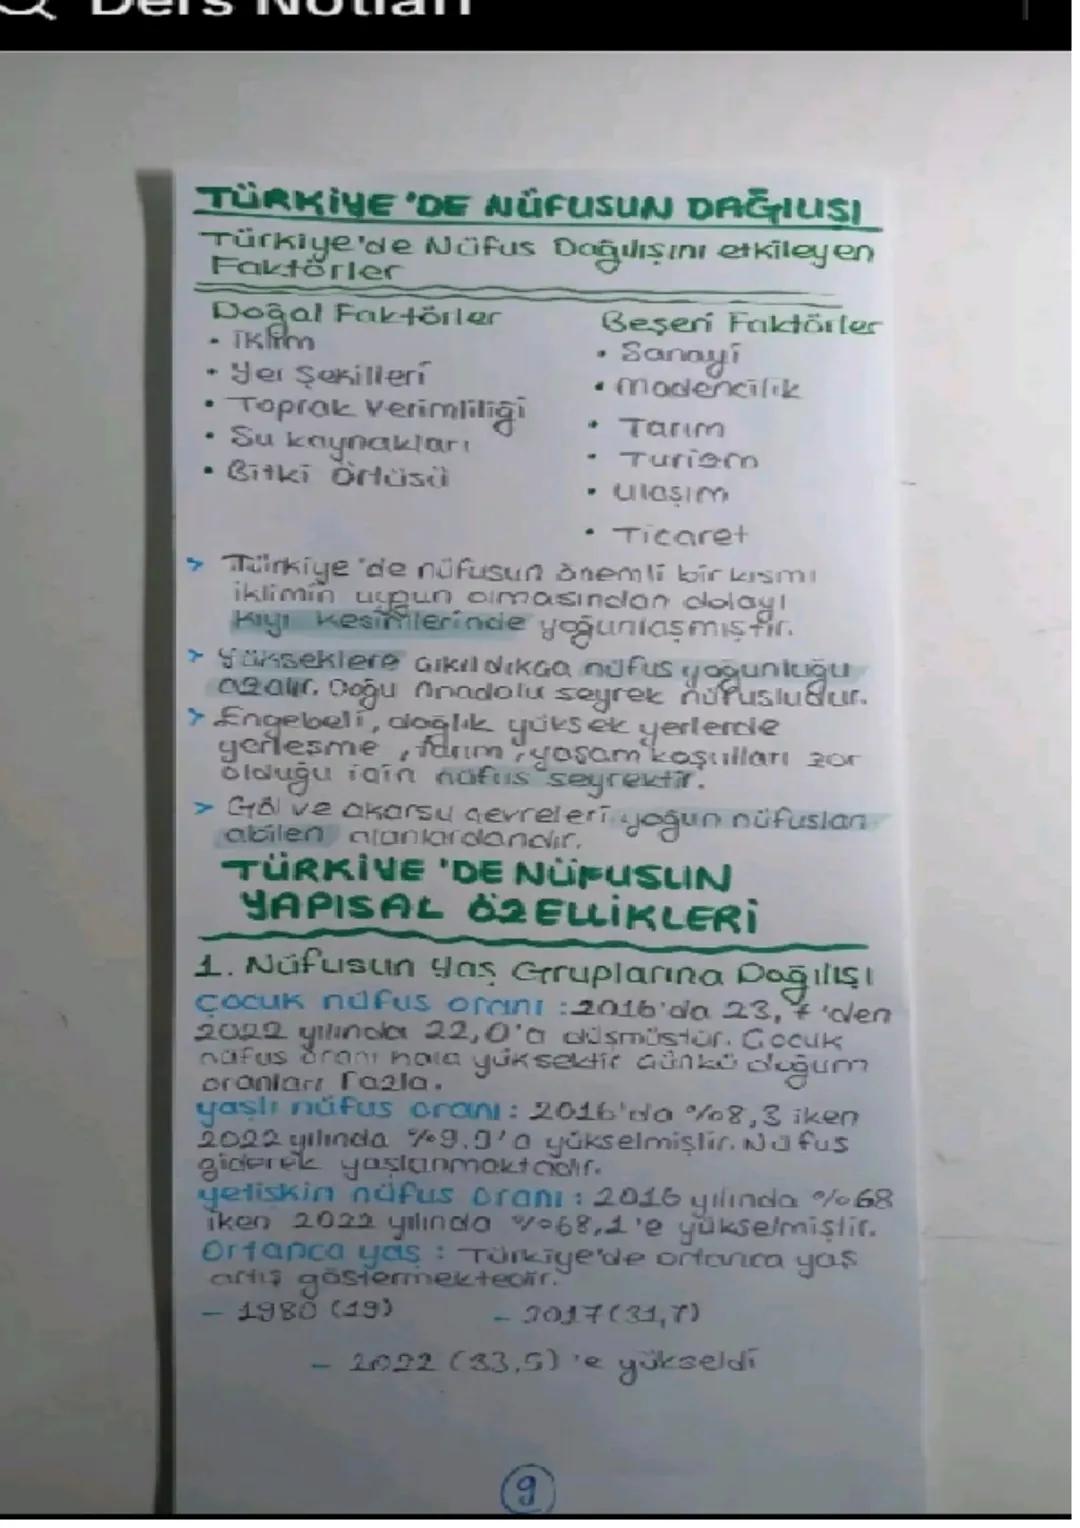 Ders Notları
TÜRKİYE'DE NÜFUSUN DAĞILIŞI
Türkiye'de Nüfus Dağılışını etkileyen
Faktörler
Doğal Faktörler
• İklim
• Yer Şekilleri
• Toprak Verimliliği
• Su kaynakları
• Bitki Örtüsü
Beşeri Faktörler
• Sanayi
• Madencilik
• Tarım
• Turizm
• Ulaşım
• Ticaret
> Türkiye'de nüfusun önemli bir kısmı
iklimin uygun olmasından dolayı
kıyı kesimlerinde yoğunlaşmıştır.
> Yükseklere çıkıldıkça nüfus yoğunluğu
azalır. Doğu Anadolu seyrek nüfusludur.
> Engebeli, dağlık yüksek yerlerde
yerleşme, tarım, yaşam koşulları zor
olduğu için nüfus seyrektir.
> Göl ve akarsu çevreleri yoğun nüfuslan
abilen alanlardandır.
TÜRKİYE'DE NÜFUSUN
YAPISAL ÖZELLİKLERİ
1. Nüfusun Yaş Gruplarına Dağılışı
Çocuk nüfus oranı : 2016'da 23,7'den
2022 yılında 22,0'a düşmüştür. Çocuk
nüfus oranı hala yüksektir çünkü doğum
oranları fazla.
yaşlı nüfus oranı : 2016'da %8,3 iken
2022 yılında %9.9'a yükselmiştir. Nüfus
giderek yaşlanmaktadır.
yetişkin nüfus oranı : 2016 yılında %68
iken 2022 yılında %68,1'e yükselmiştir.
Ortanca yaş : Türkiye'de ortanca yaş
artış göstermektedir.
- 1980 (19) - 2017 (31,7)
- 2022 (33,5)'e yükseldi
9